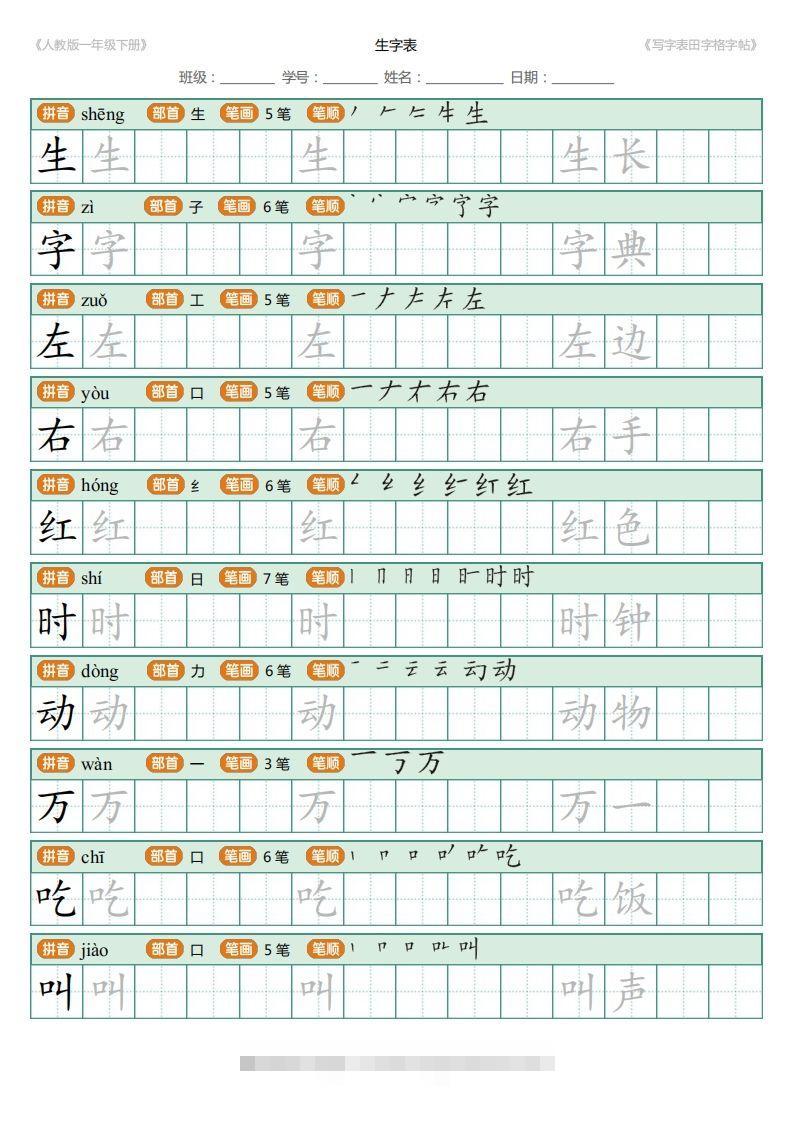 《人教版一年级下册》 生字表 《写字表田字格字帖》
班级：_______ 学号：_______ 姓名：__________ 日期：________
拼音 shēng 部首 生 笔画 5 笔 笔顺
生 生 生 生 长
拼音 zì 部首 子 笔画 6 笔 笔顺
字 字 字 字 典
拼音 zuǒ 部首 工 笔画 5 笔 笔顺
左 左 左 左 边
拼音 yòu 部首 口 笔画 5 笔 笔顺
右 右 右 右 手
拼音 hóng 部首 纟 笔画 6 笔 笔顺
红 红 红 红 色
拼音 shí 部首 日 笔画 7 笔 笔顺
时 时 时 时 钟
拼音 dòng 部首 力 笔画 6 笔 笔顺
动 动 动 动 物
拼音 wàn 部首 一 笔画 3 笔 笔顺
万 万 万 万 一
拼音 chī 部首 口 笔画 6 笔 笔顺
吃 吃 吃 吃 饭
拼音 jiào 部首 口 笔画 5 笔 笔顺
叫 叫 叫 叫 声